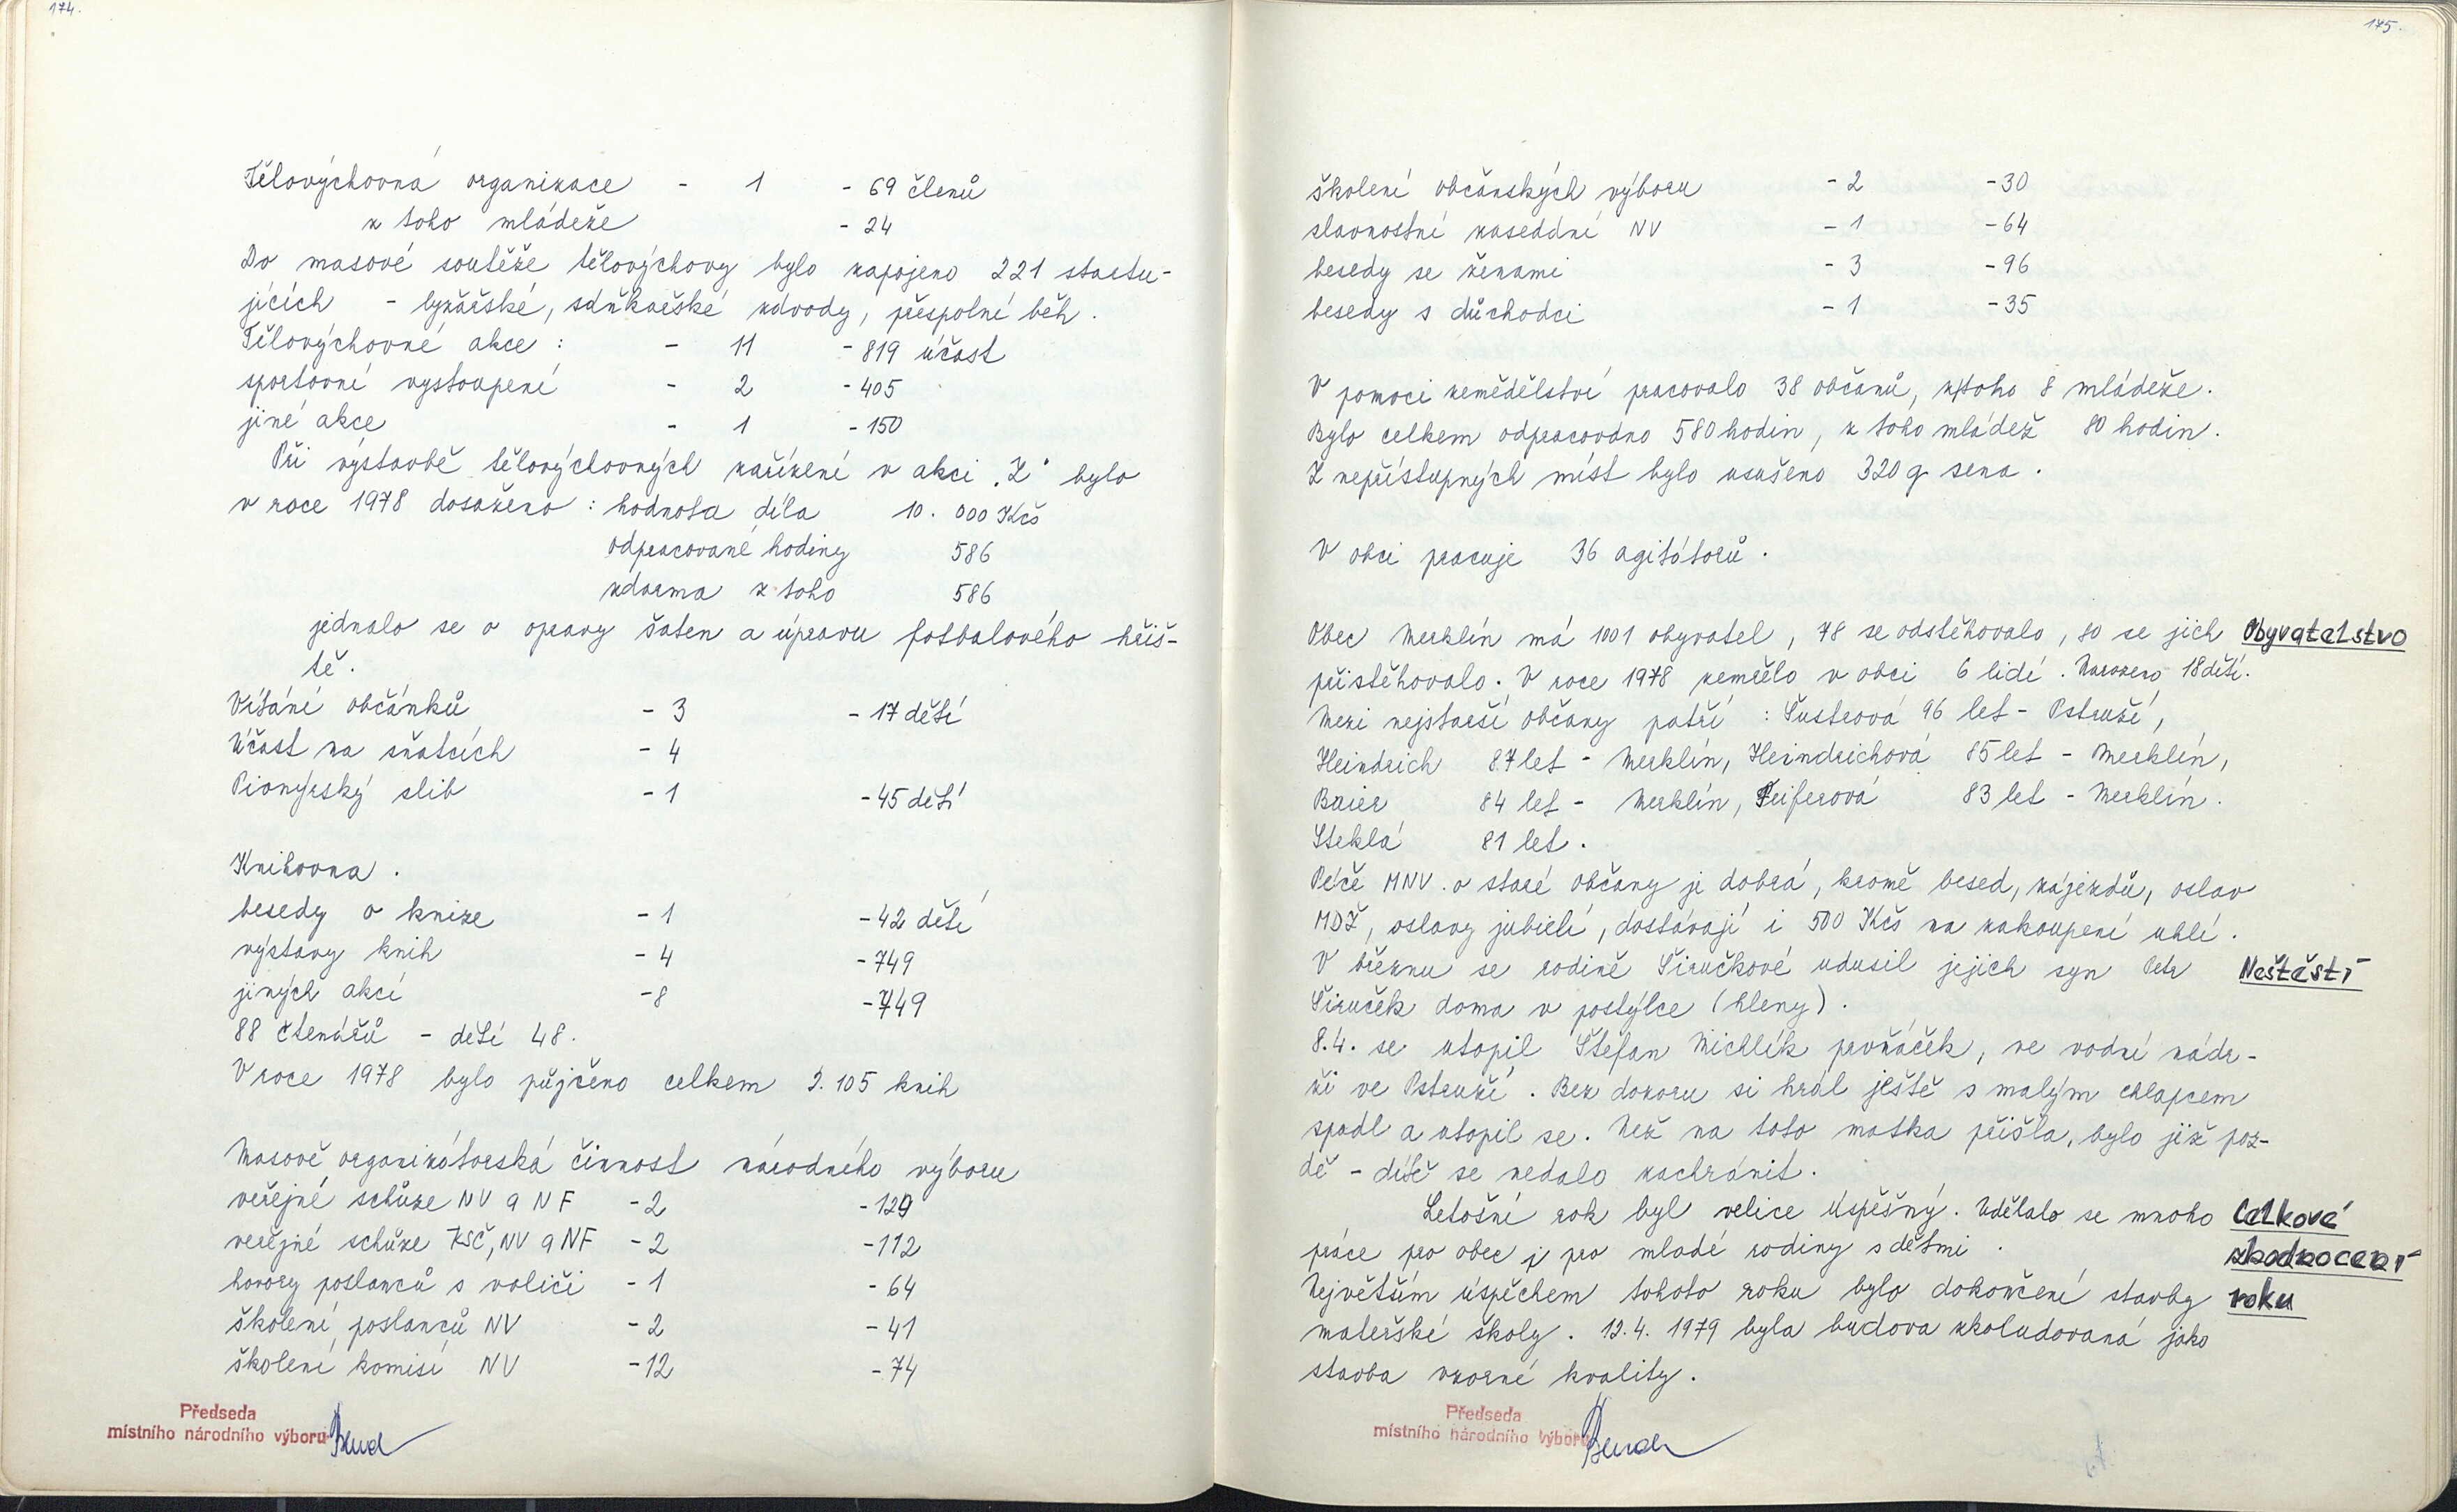 174.
Tělovýchovná organizace - 1 - 69 členů
z toho mládeže - 24
Do masové soutěže tělovýchovy bylo zapojeno 221 startu-
jících - lyžařské, sáňkařské závody, přespolní běh.
Tělovýchovné akce : - 11 - 819 účast
sportovní vystoupení - 2 - 405
jiné akce - 1 - 150
Při výstavbě tělovýchovných zařízení v akci „Z" bylo
v roce 1978 dosaženo : hodnota díla 10. 000 Kčs
odpracované hodiny 586
zdarma z toho 586
jednalo se o opravy šaten a úpravu fotbalového hřiš-
tě.
Vítání občánků - 3 - 17 dětí
Účast na sňatcích - 4
Pionýrský slib - 1 - 45 dětí
Knihovna.
besedy o knize - 1 - 42 dětí
výstavy knih - 4 - 749
jiných akcí - 8 - 749
88 čtenářů - dětí 48.
V roce 1978 bylo půjčeno celkem 2.105 knih
Masově organizátorská činnost národního výboru
veřejné schůze NV a NF - 2 - 129
veřejné schůze KSČ, NV a NF - 2 - 112
hovory poslanců s voliči - 1 - 64
školení poslanců NV - 2 - 41
školení komisí NV - 12 - 74
Předseda
místního národního výboru
175.
školení občanských výboru - 2 - 30
slavnostní zasedání NV - 1 - 64
besedy se ženami - 3 - 96
besedy s důchodci - 1 - 35
V pomoci zemědělství pracovalo 38 občanů, z toho 8 mládeže.
Bylo celkem odpracováno 580 hodin, z toho mládež 80 hodin.
Z nepřístupných míst bylo usušeno 320 q sena.
V obci pracuje 36 agitátorů.
Obec Merklín má 1001 obyvatel, 78 se odstěhovalo, 80 se jich Obyvatelstvo
přistěhovalo. V roce 1978 zemřelo v obci 6 lidí. Narozeno 18 dětí.
Mezi nejstarší občany patří : Šustrová 96 let - Pstruží,
Heindrich 87 let - Merklín, Heindrichová 85 let - Merklín,
Baier 84 let - Merklín, Feiferová 83 let - Merklín.
Steklá 81 let.
Péče MNV. o staré občany je dobrá, kromě besed, zájezdů, oslav
MDŽ, oslavy jubileí, dostávají i 500 Kčs na zakoupení uhlí.
V březnu se rodině Širučkové udusil jejich syn Petr Neštěstí
Širuček doma v postýlce (hleny).
8.4. se utopil Štefan Michlík prvňáček, ve vodní nádr-
ži ve Pstruží. Bez dozoru si hrál ještě s malým chlapcem
spadl a utopil se. Než na toto matka přišla, bylo již poz-
dě - dítě se nedalo zachránit.
Letošní rok byl velice úspěšný. Udělalo se mnoho Celkové
práce pro obec i pro mladé rodiny s dětmi. zhodnocení
Největším úspěchem tohoto roku bylo dokončení stavby roku
mateřské školy. 12.4. 1979 byla budova zkoludovaná jako
stavba vzorné kvality.
Předseda
místního národního výboru